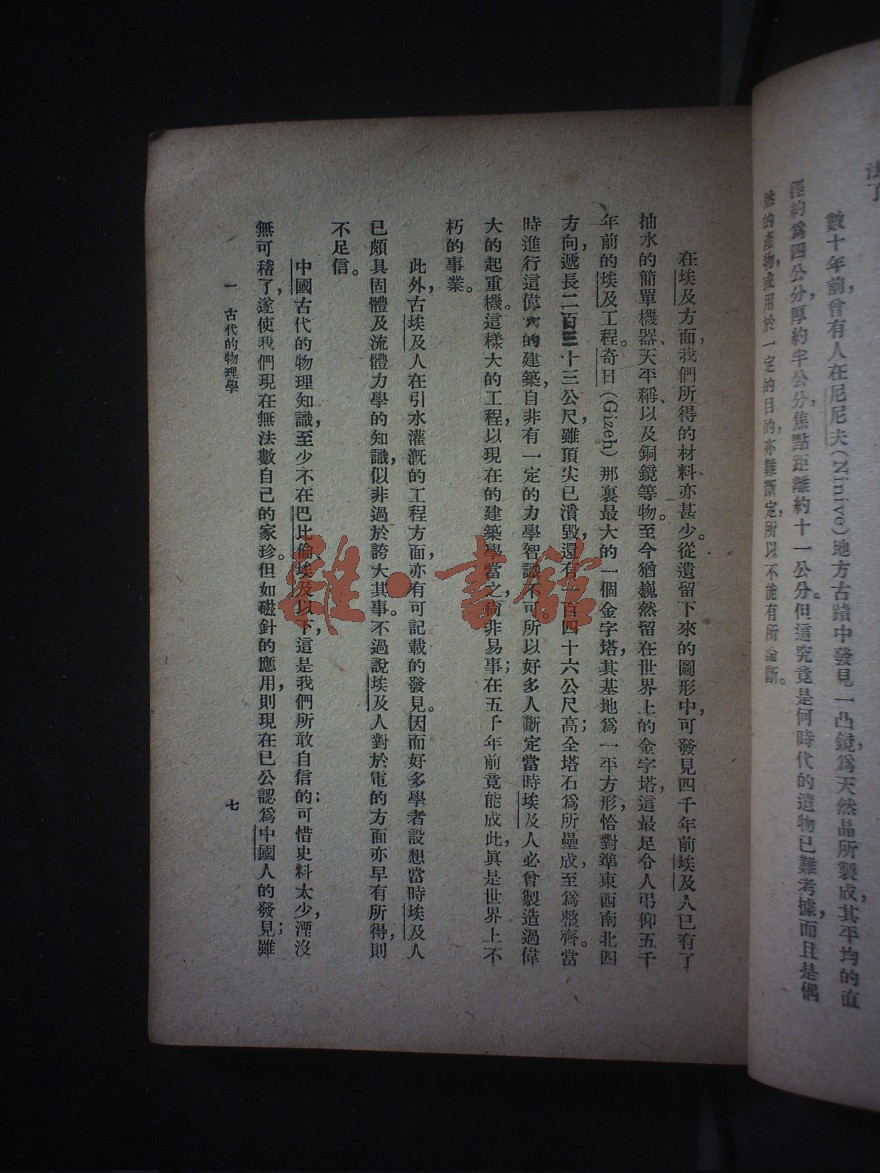 法了
數十年前，曾有人在尼尼夫(Ninive)地方古蹟中發見一凸鏡，爲天然晶所製成，其平均的直
徑約爲四公分，厚約半公分，焦點距離約十一公分。但這究竟是何時代的遺物，已難考據，而且是偶
然的產物，或用於一定的目的，亦難斷定，所以不能有所論斷。
在埃及方面，我們所得的材料亦甚少。從遺留下來的圖形中，可發見四千年前埃及人已有了
抽水的簡單機器、天平、稱以及銅鏡等物。至今猶巍然留在世界上的金字塔，這最足令人弔仰五千
年前的埃及工程。奇日(Gizeh)那裏最大的一個金字塔，其基地爲一平方形，恰對準東西南北四
方向，遞長二百三十三公尺，雖頂尖已潰毀，還有一百四十六公尺高；全塔石爲所壘成，至爲整齊。當
時進行這偉大的建築，自非有一定的力學智識不可，所以好多人斷定當時埃及人必曾製造過偉
大的起重機。這樣大的工程，以現在的建築學當之，尚非易事；在五千年前竟能成此，眞是世界上不
朽的事業。
此外古埃及人在引水灌漑的工程方面，亦有可記載的發見。因而好多學者設想當時埃及人
已頗具固體及流體力學的知識，似非過於誇大其事。不過說埃及人對於電的方面亦早有所得，則
不足信。
中國古代的物理知識，至少不在巴比倫、埃及以下，這是我們所敢自信的；可惜史料太少，湮沒
無可稽了，遂使我們現在無法數自己的家珍。但如磁針的應用，則現在已公認爲中國人的發見；雖
一 古代的物理學
七
雒·書館